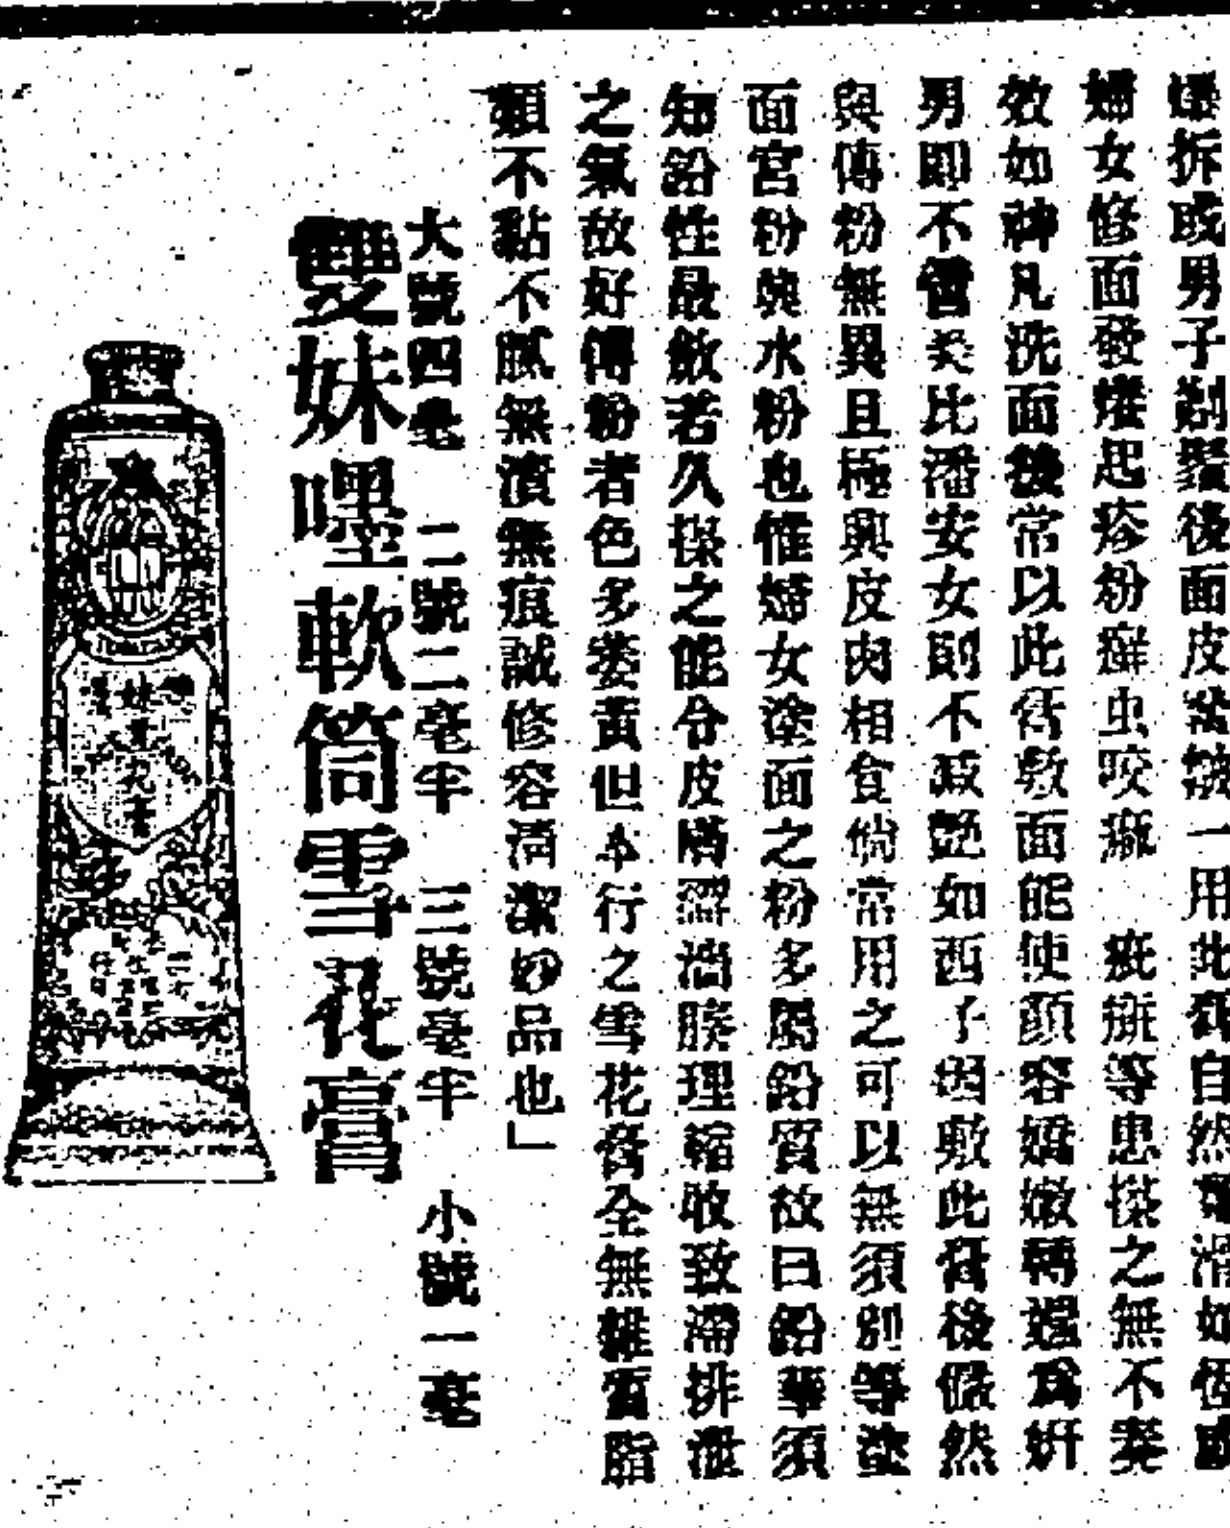 拆或男子剃鬚後面皮皺一用此膏自然滑如恆
婦女修面發癢起疹粉癬虫咬疵斑等患搽之無不奏
效如神凡洗面後常以此膏敷面能使顔容嬌嫩轉媸爲妍
男即不曾美比潘安女則不減艶如西子因敷此膏後儼然
與傅粉無異且極與皮肉相食倘常用之可以無須別等塗
面宮粉與水粉也惟婦女塗面之粉多屬鉛質故曰鉛華須
知鉛性最斂若久搽之能令皮膚澀滯腠理縮收致滯排泄
之氣故好傅粉者色多萎黃但本行之雪花膏全無雜質脂
類不黏不膩無漬無痕誠修容清潔妙品也」
大號四毫 二號二毫半 三號毫半 小號一毫
雙妹嚜軟筒雪花膏